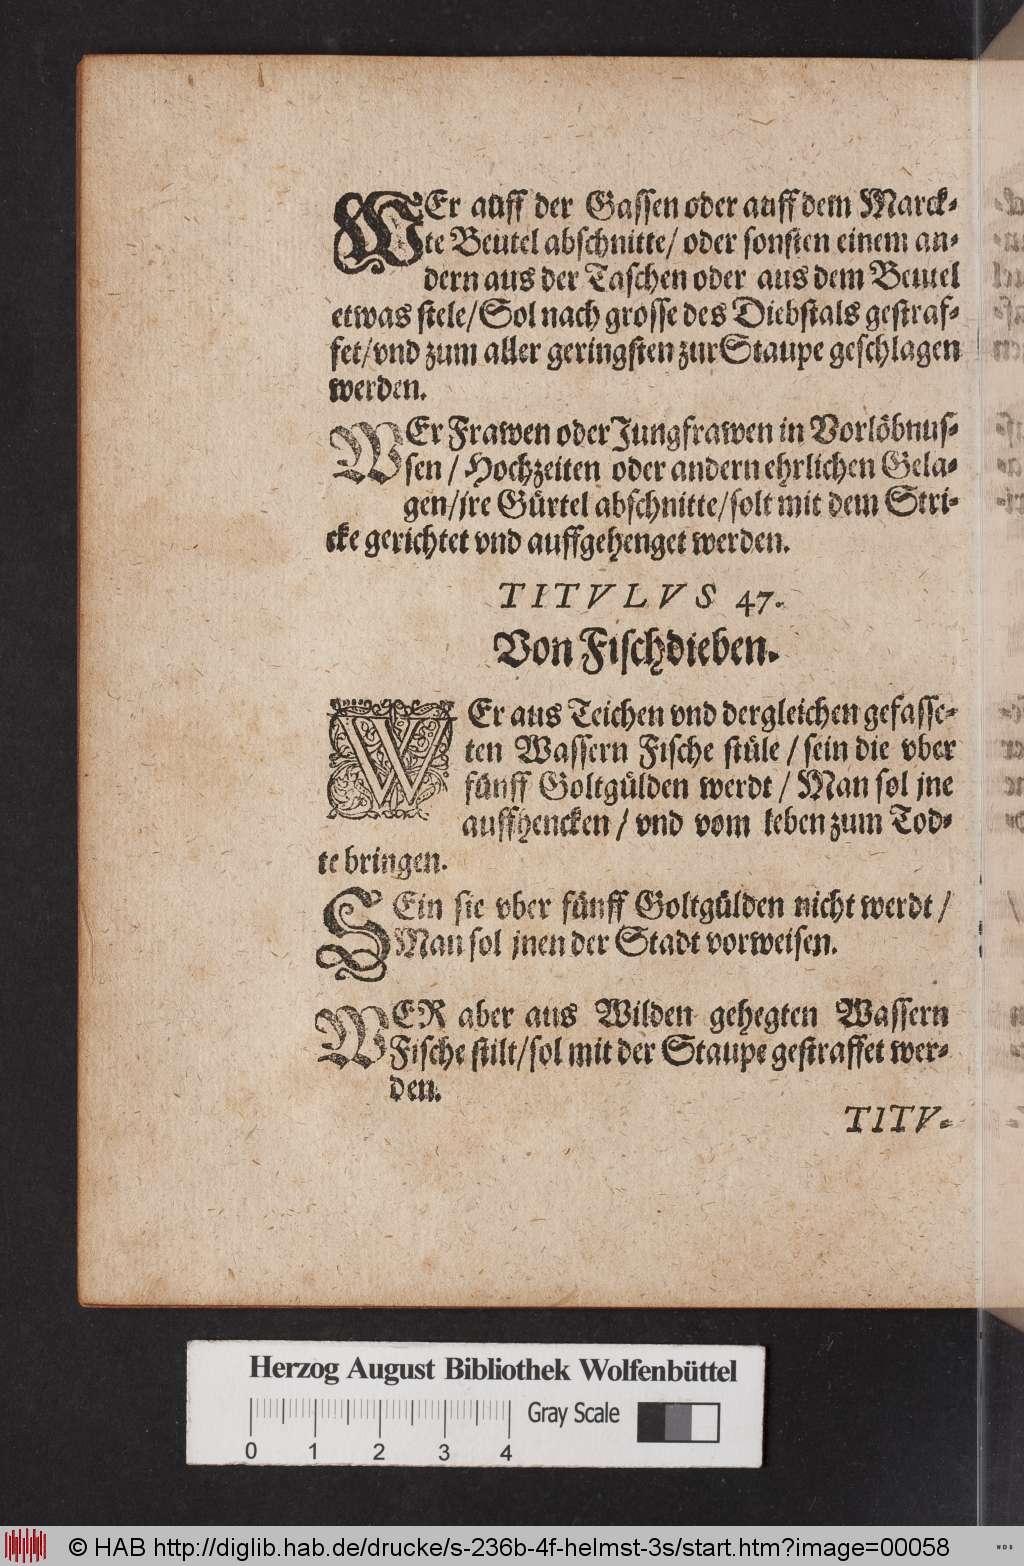 WEr auff der Gassen oder auff dem Marck-
te Beutel abschnitte/ oder sonsten einem an-
dern aus der Taschen oder aus dem Beutel
etwas stele/ Sol nach grosse des Diebstals gestraf-
fet/ vnd zum aller geringsten zur Staupe geschlagen
werden.
WEr Frawen oder Jungfrawen in Vorlöbnus-
sen / Hochzeiten oder andern ehrlichen Gela-
gen/ jre Gürtel abschnitte/ solt mit dem Stri-
cke gerichtet vnd auffgehenget werden.
TITVLVS 47.
Von Fischdieben.
WEr aus Teichen vnd dergleichen gefasse-
ten Wassern Fische stüle / sein die vber
fünff Goltgülden werdt / Man sol jne
auffhencken / vnd vom leben zum Tod-
te bringen.
SEin sie vber fünff Goltgülden nicht werdt /
Man sol jnen der Stadt vorweisen.
WER aber aus Wilden gehegten Wassern
Fische stilt/ sol mit der Staupe gestraffet wer-
den.
TITV-
Herzog August Bibliothek Wolfenbüttel
Gray Scale
0 1 2 3 4
© HAB http://diglib.hab.de/drucke/s-236b-4f-helmst-3s/start.htm?image=00058